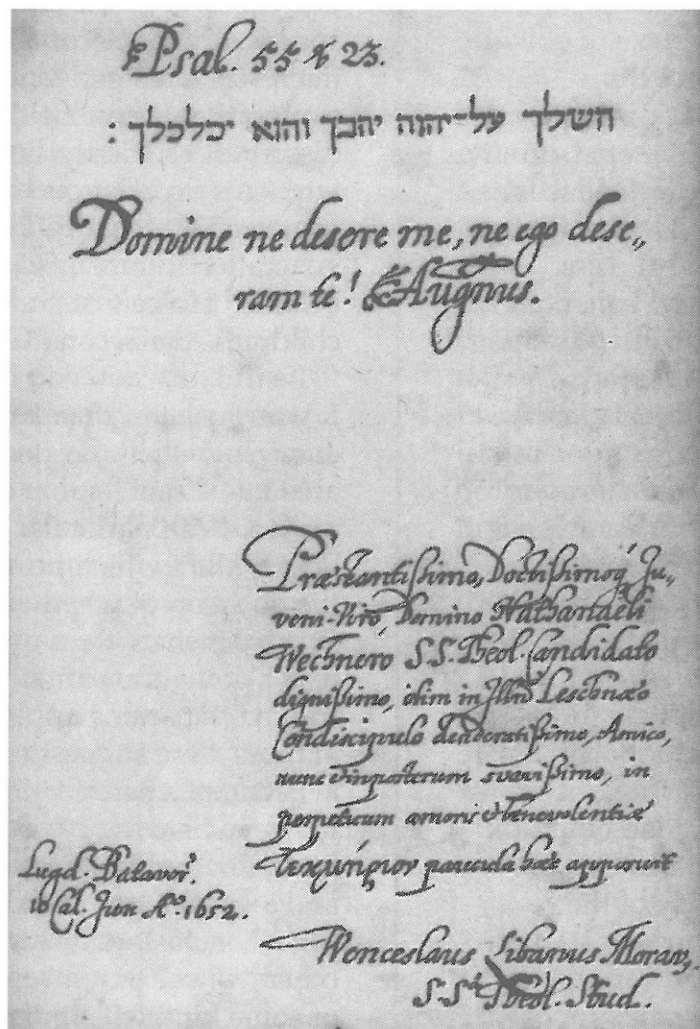 Psal. 55 ℣ 23.
השלך על־יהוה יהבך והוא יכלכלך :
Domine ne desere me, ne ego dese„
ram te! Augnus.
Præstantißimo, Doctißimoq́ Ju„
veni-Viro, Domino Nathanaeli
Wechnero S S. Theol. Candidato
dignißimo, olim in Illri Lesčnæo
Condiscipulo desideratißimo, Amico,
nunc & inposterum suavißimo, in
perpetuum amoris & benevolentiæ
τεκμήριον paucula hæc apposuit
Lugd. Batavor.
10 Cal. Jun Ao. 1652.
Wenceslaus Libanus Morav,
S. Sæ Theol. Stud.